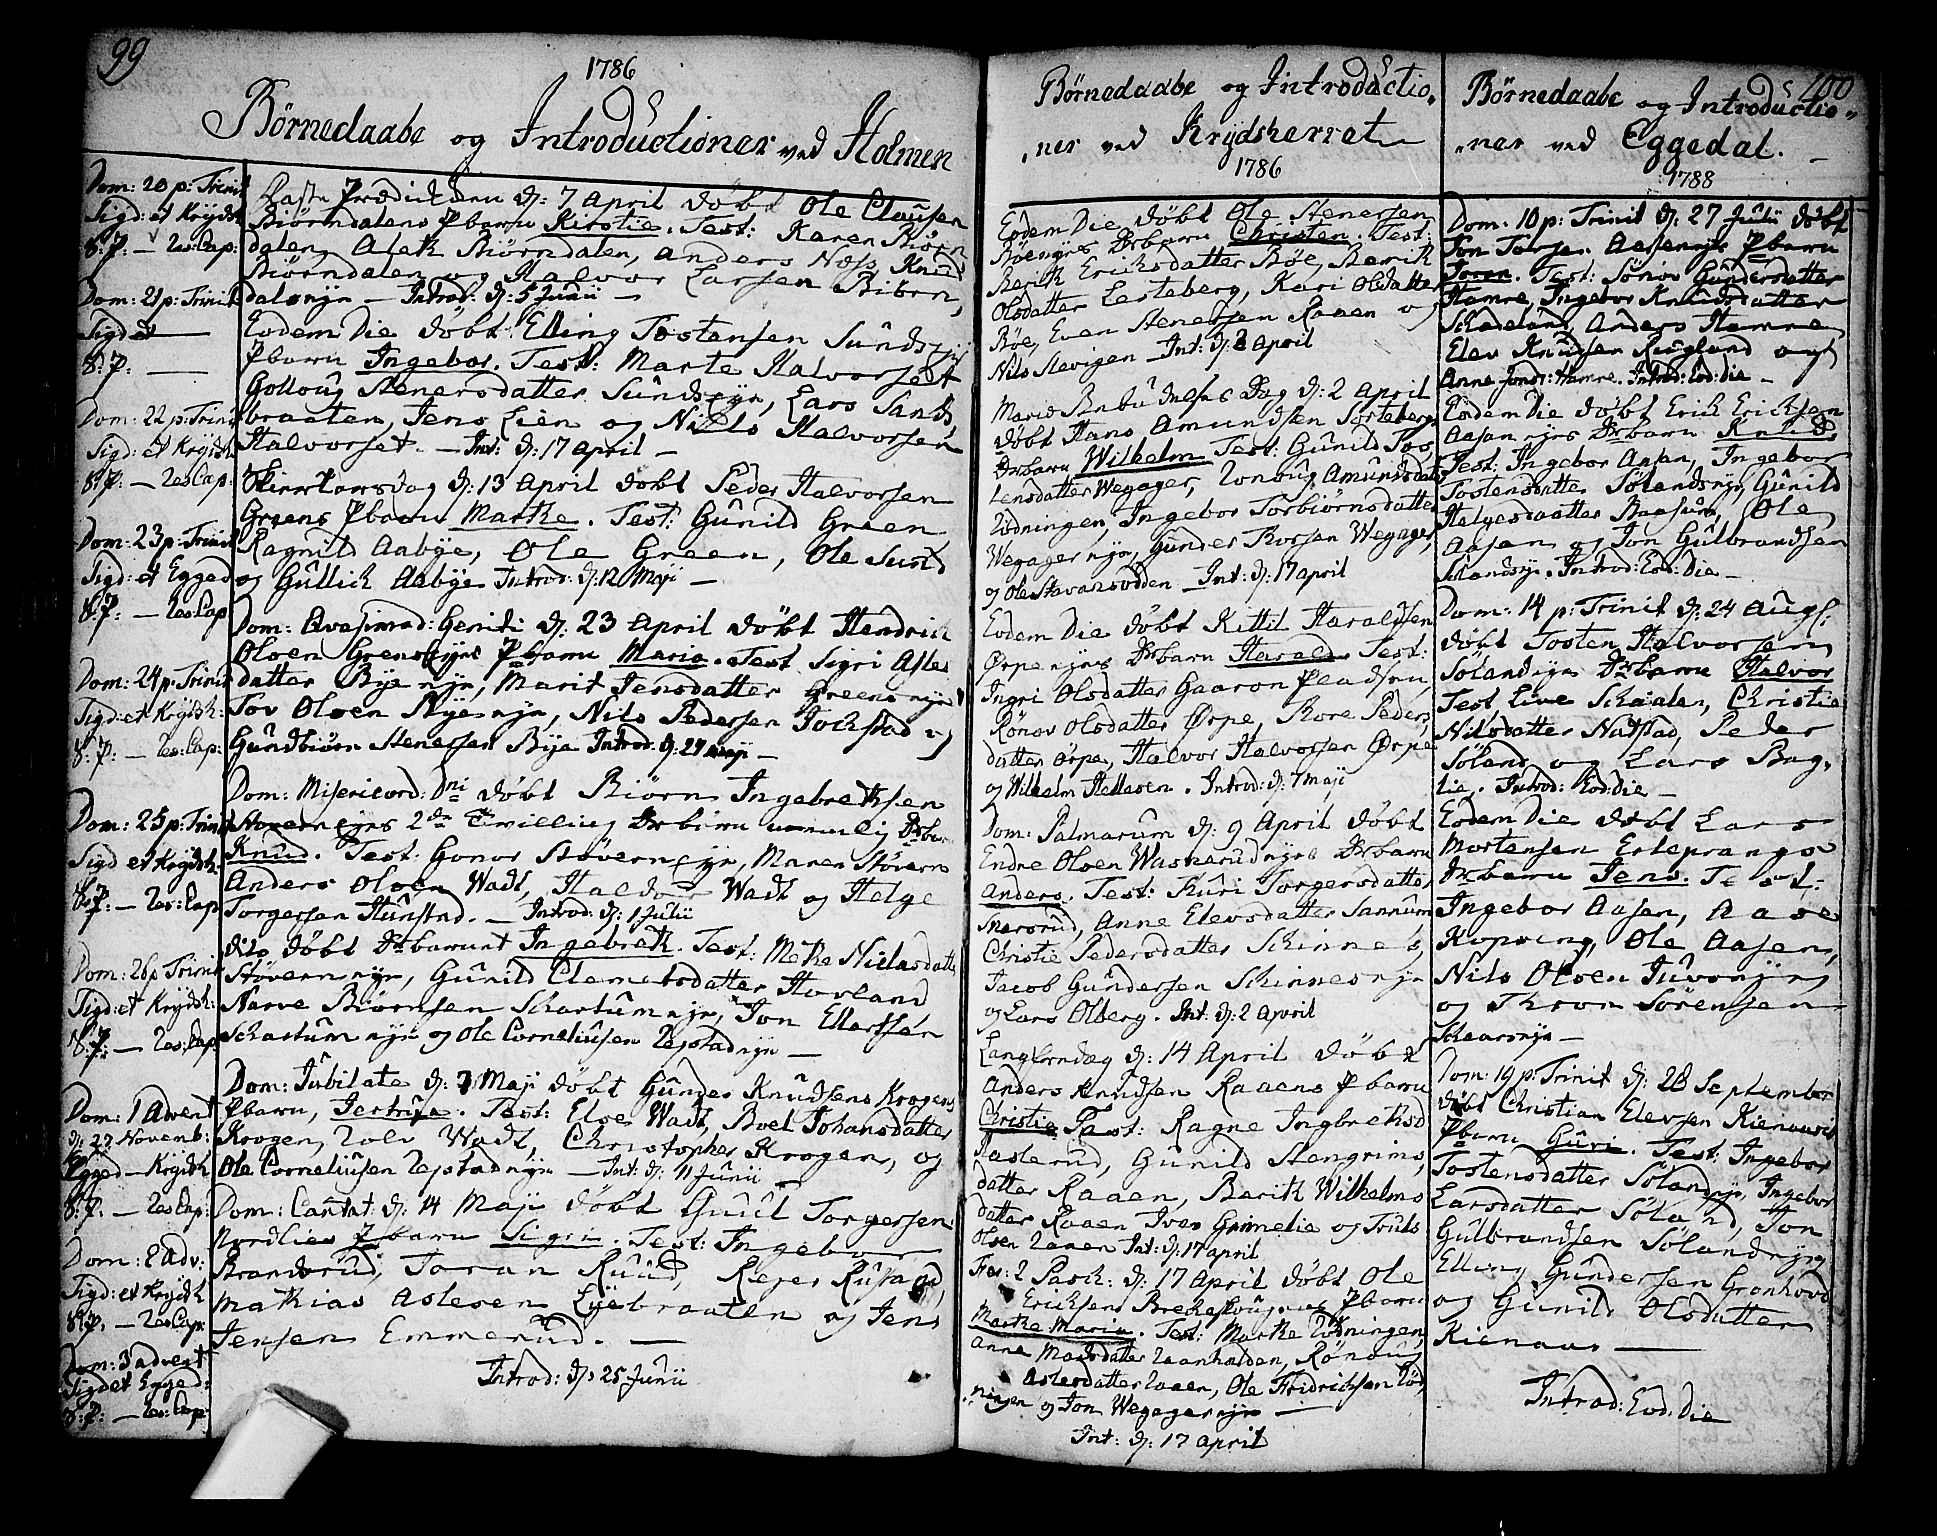 99
1786
Börnedaabe og Introductioner ved Holmen
Dom: 20 p: Trinit
Sigd: et Krydsh
S: P: — Res: Cap:
Dom: 21 p: Trinit
Sigd: et
S: P: —
Dom: 22 p: Trinit
Sigd: et Krydsh
S: P: — Res: Cap:
Dom: 23 p: Trinit
Sigd: et Egged
S: P: — Res: Cap
Dom: 24 p: Trinit
Sigd: et Krydsh:
S: P: — Res: Cap:
Dom: 25 p: Trinit
Sigd et Krydsh
S: P: — Res: Cap
Dom: 26 p Trinit
Sigd: et Krydsh:
S: P: — Res: Cap:
Dom: 1 Advent
d: 27 Novemb:
Egged — Krydsh
S: P. — Res Cap:
Dom: 2 Adv:
Sigd: et Krydsh
S: P. — Res Cap:
Dom: 3 advent
Sigd et Egged:
S: P: — Res: Cap:
Faste Prædicken d: 7 April döbt Ole Clausen
Biörndalens Pbarn Kirstie. Test: Karen Biörn
dalen, Alek Biörndalen, Anders Næss, Knud
Biörndalen og Halvor Larsen Biörn,
dalsnyn — Introd: d: 5 Junii —
Eodem Die döbt Elling Tostensen Sunds
Pbarn Ingebor. Test: Marte Halvorset
Gollous Stenersdatter Sundseyn, Lars Sands
braaten, Jens Lien og Niels Halvorsen
Halvorset. — Int: d: 17 april —
Skiertorsdag d: 13 April döbt Peder Halvorsen
Greens Pbarn Marthe. Test: Gunild Green
Ragnild Aabye, Ole Green, Ole Sund
og Gullich Aabye Introd: d: 12 Maji —
Dom: Qvasimod: Geniti d: 23 April döbt Hendrich
Olsen Grenseyns Pbarn Maria. Test Sigri Asles
datter Bye nyn, Marit Jensdatter Greens nyn
Tov Olsen Nye nyn, Nils Pedersen Jockstad og
Gundbiörn Stenersen Bye Introd: d: 29 maji —
Dom: Misericord: Dni döbt Biörn Ingebrethsen
Stoverneyns 2de Tvilling Drbörn nemlig Drbarn
Knud. Test: Gonor Stöverneyn, Maren Stövern
Anders Olsen Wadt, Haldor Wadt og Helge
Torgersen Hunstad. — Introd: d: 1 Julii
dito döbt Drbarnet Ingebreth. Test: Methe Nielsdatter
Stövern nyn, Gunild Clemetsdatter Hovland
Narve Biörnsen Schartum nyn, Jon Ellertsen
Schartum nyn og Ole Corneliusen Zepstadnyn —
Dom: Jubilate d: 7 Maji döbt Gunder Knudsens Krogens
Pbarn, Jertrue. Test: Eloe Wadt, Boel Johansdatter
Krogen, Zolv Wadt, Christopher Krogen, og
Ole Corneliusen Zepstadnyn — Int: d: 11 Junii —
Dom: Cantat: d: 14 Maji döbt Guul Torgersen
Nordlies Pbarn Sigri. Test: Ingebor
Brandsrud, Toran Ruud, Reyer Rustad,
Mathias Aslesen Lyebraaten og Jens
Jensen Emmerud. —
Introd: d: 25 Junii
Börnedaabe og Introductio,
,ner ved Krydsherret
1786
Eodem Die döbt Ole Stenersen
Böenyns Drbarn Christen. Test:
Berith Ericksdatter Böe, Berith
Olsdatter Lesteberg, Kari Olsdatter
Böe, Even Stenersen Raaen og
Nils Slevigen — Int: d: 8 April
Mariæ Bebudelses Dag d: 2 April
döbt Hans Amundsen Sorteberg
Drbarn Wilhelm. Test: Gunild Tos,
tensdatter Wegager, Zonoug Amundsdatter
Zödningen, Ingebor Torbiörnsdatter
Wegager nyn, Gunder Thorsen Wegager,
og Ole Stavansodden — Int: d: 17 april
Eodem Die döbt Kittil Haraldsen
Ørpe nyns Drbarn Harald. Test:
Ingri Olsdatter Gaaron Pladsen,
Rönov Olsdatter Ørpe, Thore Peders
datter Ørpe, Halvor Halvorsen Ørpe
og Wilhelm Hellesen. Introd: d: 7 maji
Dom: Palmarum d: 9 April döbt
Endre Olsen Waskerudnyns Drbarn
Anders. Test: Thuri Torgersdatter
Snersrud, Anne Elevsdatter Sannum
Christie Pedersdatter Schinnes,
Jacob Gundersen Schinnesnyn
og Lars Olberg. Int: d: 2 April
Langfredag d: 14 April döbt
Anders Knudsen Raaens Pbarn
Christie Test: Ragne Ingbrethsd
Hasterud, Gunild Stengrims,
datter Raaen, Berith Wilhelms
datter Raaen Iver Grimelie og Truls
Olsen Raaen Int: d: 17 april
Fer: 2 Pasch: d: 17 April döbt Ole
Ericksen Brekkes Pbarn
Marthe Maria. Test: Marthe Zödningen,
Anne Madsdatter Zaanhalden, Rönoug
Aslesdatter Zaaen, Ole Fridrichsen Zöd,
ningen og Jon Wegagernyn —
Int: d: 17 april
100
Börnedaabe og Introductio,
,ner ved Eggedal. —
1788
Dom: 10 p: Trinit d: 27 Julii döbt
Jon Torsen Aasennyns Pbarn
Joren. Test: Sönov Gundersdatter
Hamre, Ingebor Knudsdatter
Schadeland, Anders Hamre
Elev Knudsen Ringland og
Anne Jonsd: Hamre. Introd: Eod: die —
Eodem Die döbt Erik Ericksen
Aasen nyns Drbarn Knud.
Test: Ingebor Aasen, Ingebor
Tostensdatter Sölandsnyn, Gunild
Helgesdaatter Baasum, Ole
Aasen og Jon Gulbrandsen
Sölandsyn. Introd: Eod: Die —
Dom: 14 p: Trinit d: 24 Augs:
döbt Tosten Halvorsen
Sölandsyn Drbarn Halvor
Test Live Schaalen, Christie
Nilsdatter Nubstad, Peder
Söland og Lars Bag,
lie. Introd: Eod: die —
Eodem Die döbt Lars
Mortensen Erteprangs
Drbarn Jens. Test:
Ingebor Aasen, Aase
Kopseng, Ole Aasen,
Nils Olsen Juvsnyn
og Thron Sörensen
Schaarsnyn —
Dom: 19 p: Trinit d: 28 September
döbt Christian Elevsen Kienaasis
Pbarn Guri. Test: Ingebor
Tostensdatter Sölandnyn, Ingebor
Larsdatter Söland, Jon
Gulbrandsen Sölandnyn,
Elling Gundersen Gronhovd
og Gunild Olsdatter
Kienaas —
Introd: Eod: Die